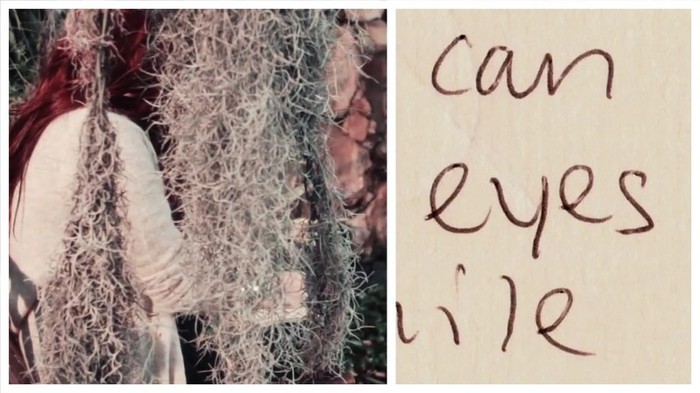 can
eyes
ile